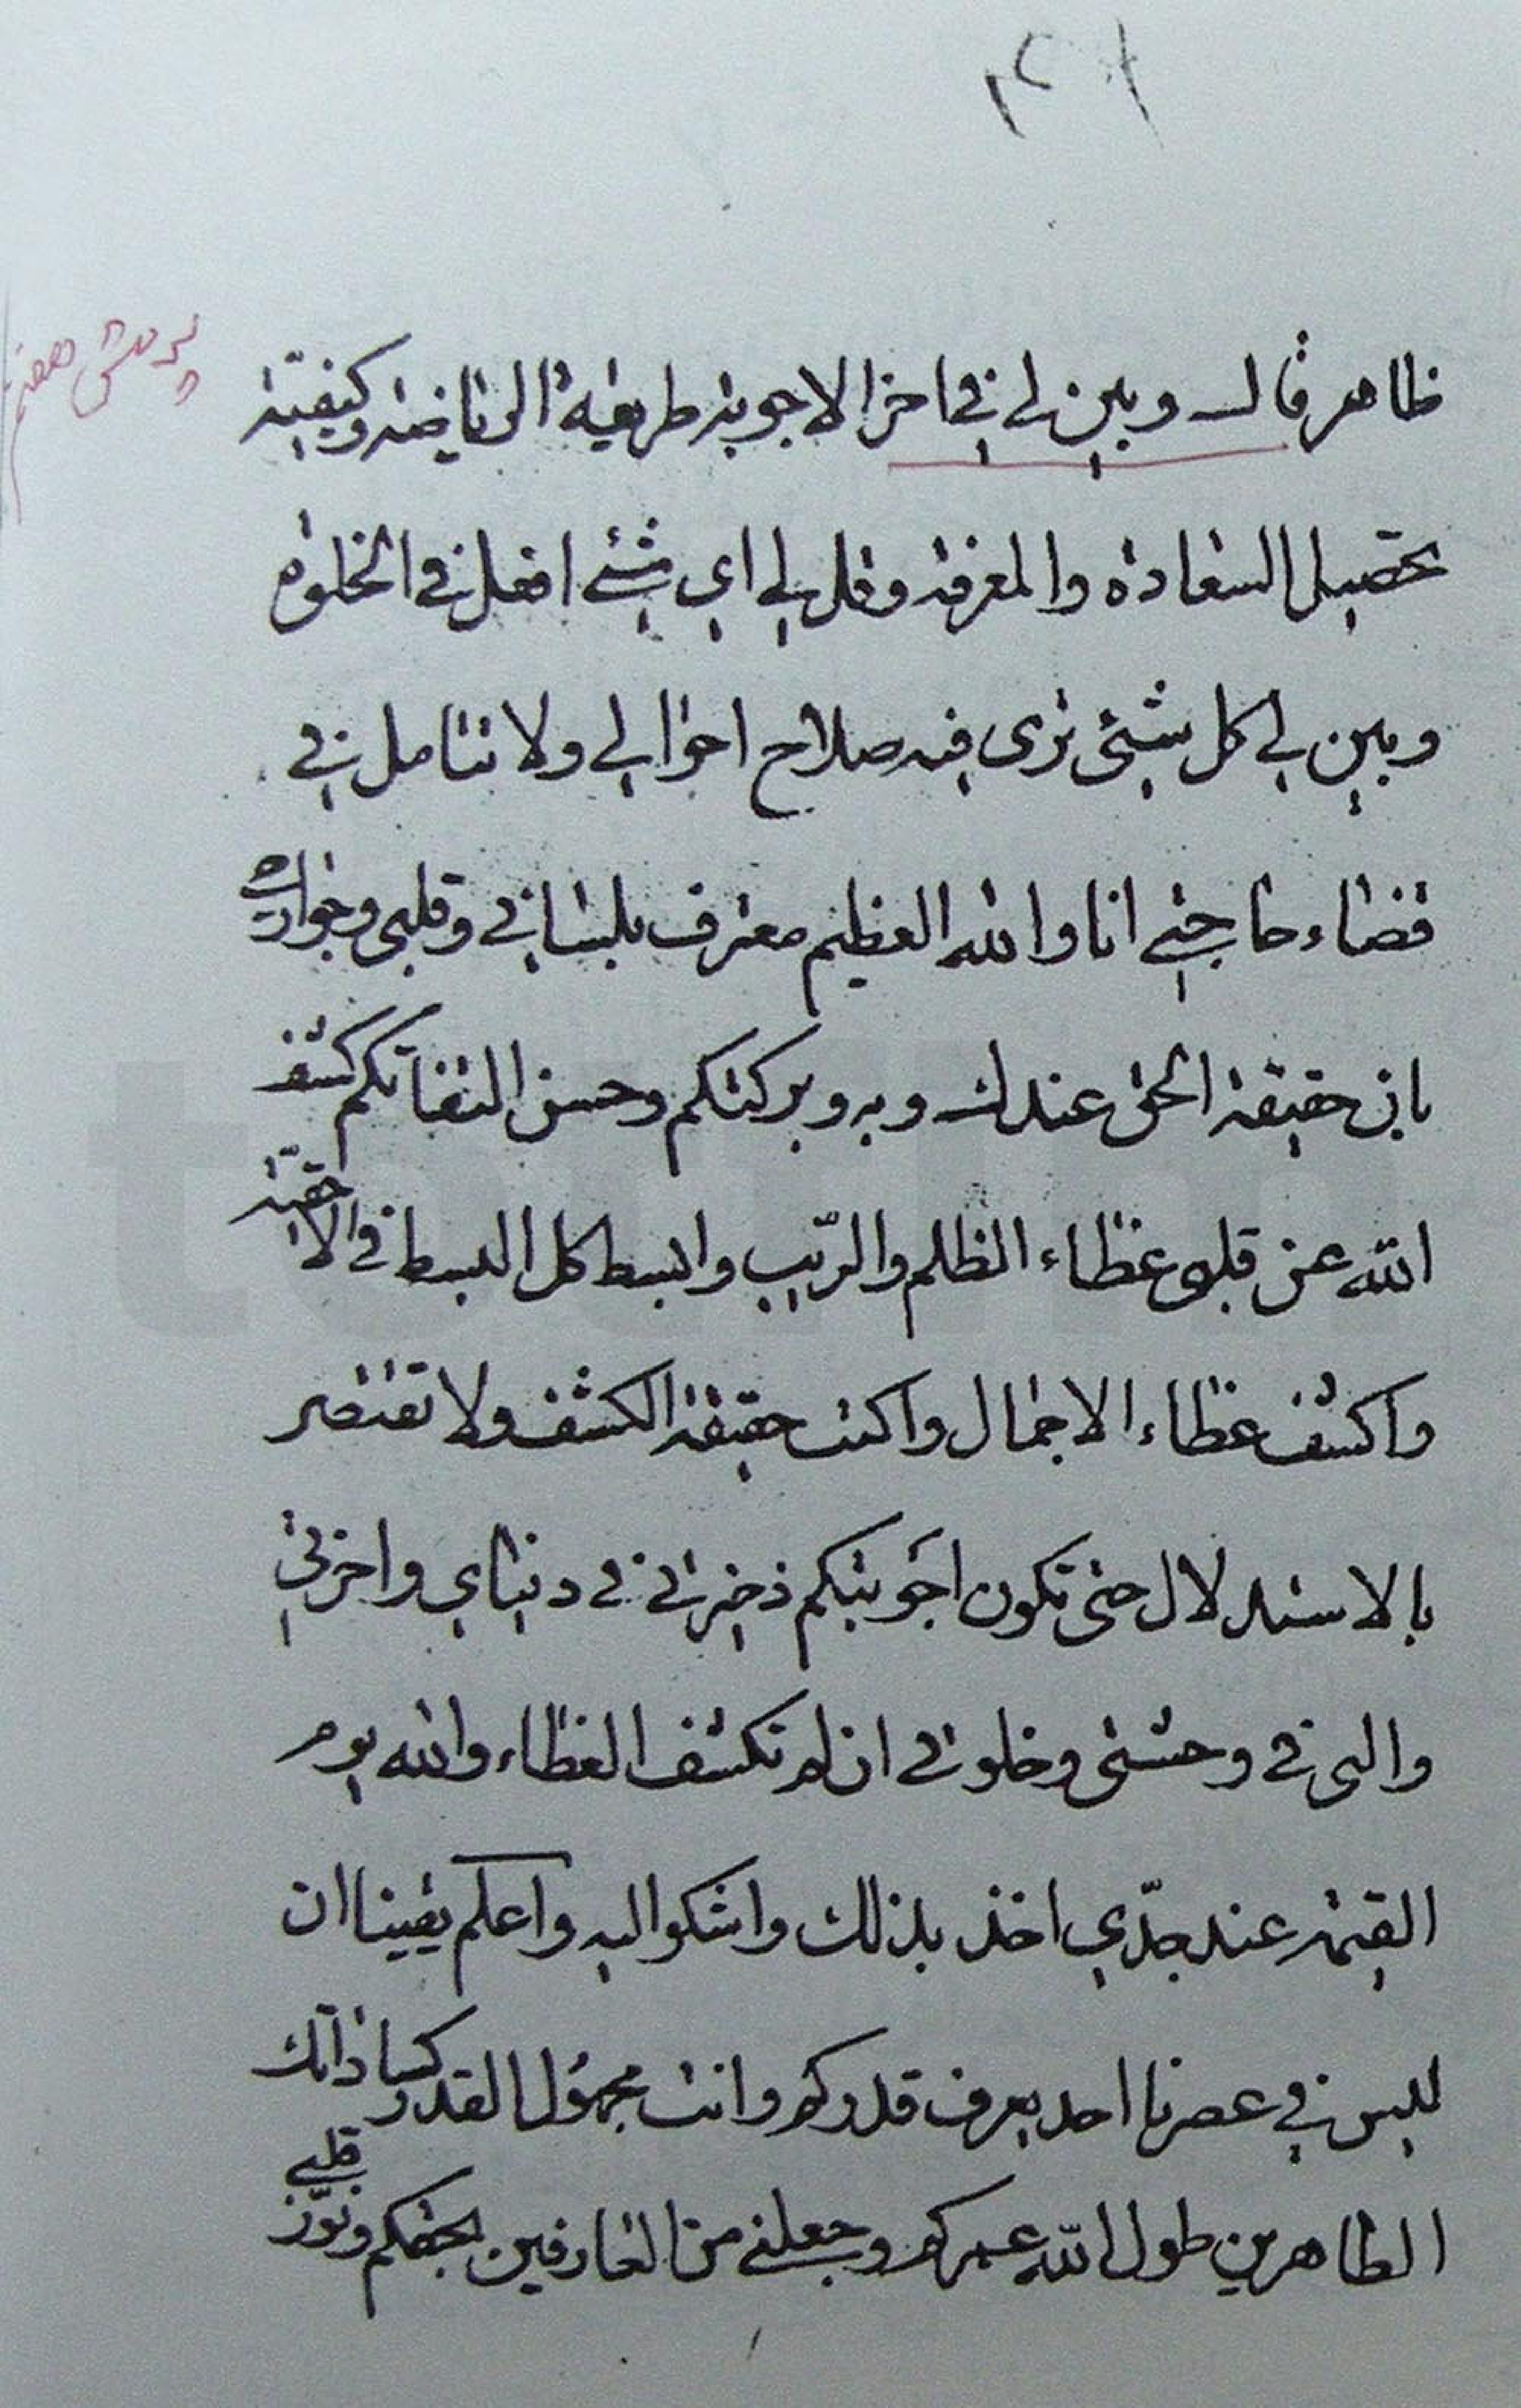 ٢١
پرسش هفتم
ظاهر قال وبين لى فى اخر الاجوبة طريقة الرياضة وكيفية
تحصيل السعادة والمعرفة وقل لي اي شئ افعل في الخلوة
وبين لي كل شئ ترى فيه صلاح احوالي ولا تتامل في
قضاء حاجتي انا والله العظيم معترف بلساني وقلبي وجوارحي
بان حقيقة الحق عندك وبه وبركتكم وحسن التفاتكم كشف
الله عن قلبي غطاء الظلم والريب وابسط كل البسط في الاحقية
واكشف غطاء الاجمال واكتب حقيقة الكشف ولا تقتصر
بالاستدلال حتى تكون اجوبتكم ذخيرتي في دنياي واخرتي
والى في وحشتي وخلوتي ان لم تكشف الغطاء والله يوم
القيمة عند جدّي اخذ بذلك واشكوا اليه واعلم يقينا ان
ليس في عصرنا احد يعرف قدركم وانت مجهول القدر كساداتك
الطاهرين طول الله عمركم وجعلني من العارفين بحقكم ونوّر قلبي